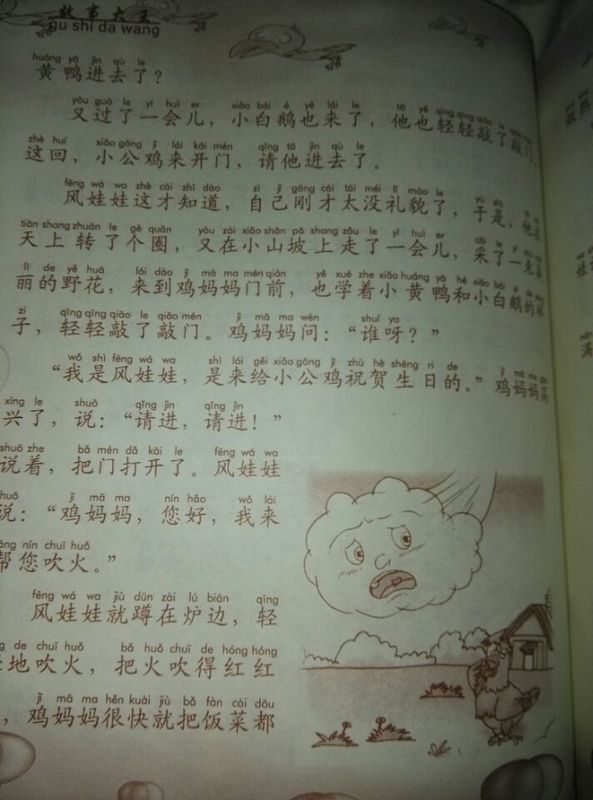 故事大王
gu shi da wang
huáng yā jìn qù le
黄鸭进去了？
yòu guò le yí huì er xiǎo bái é yě lái le tā yě qīng qīng qiāo le qiāo mén
又过了一会儿，小白鹅也来了，他也轻轻敲了敲门，
zhè huí xiǎo gōng jī lái kāi mén qǐng tā jìn qù le
这回，小公鸡来开门，请他进去了。
fēng wá wa zhè cái zhī dào zì jǐ gāng cái tài méi lǐ mào le yú shì tā zài
风娃娃这才知道，自己刚才太没礼貌了，于是，他在
tiān shang zhuàn le gè quān yòu zài xiǎo shān pō shang zǒu le yí huì er cǎi le yì
天上转了个圈，又在小山坡上走了一会儿，采了一
lì de yě huā lái dào jī mā ma mén qián yě xué zhe xiǎo huáng yā hé xiǎo bái é de
丽的野花，来到鸡妈妈门前，也学着小黄鸭和小白鹅的样
zi qīng qīng qiāo le qiāo mén jī mā ma wèn shuí ya
子，轻轻敲了敲门。鸡妈妈问：“谁呀？”
wǒ shì fēng wá wa shì lái gěi xiǎo gōng jī zhù hè shēng rì de jī mā ma
“我是风娃娃，是来给小公鸡祝贺生日的。”鸡妈妈高
xìng le shuō qǐng jìn qǐng jìn
兴了，说：“请进，请进！”
shuō zhe bǎ mén dǎ kāi le fēng wá wa
说着，把门打开了。风娃娃
shuō jī mā ma nín hǎo wǒ lái
说：“鸡妈妈，您好，我来
bāng nín chuī huǒ
帮您吹火。”
fēng wá wa jiù dūn zài lú biān qīng
风娃娃就蹲在炉边，轻
de chuī huǒ bǎ huǒ chuī de hóng hóng
地吹火，把火吹得红红
jī mā ma hěn kuài jiù bǎ fàn cài dōu
，鸡妈妈很快就把饭菜都